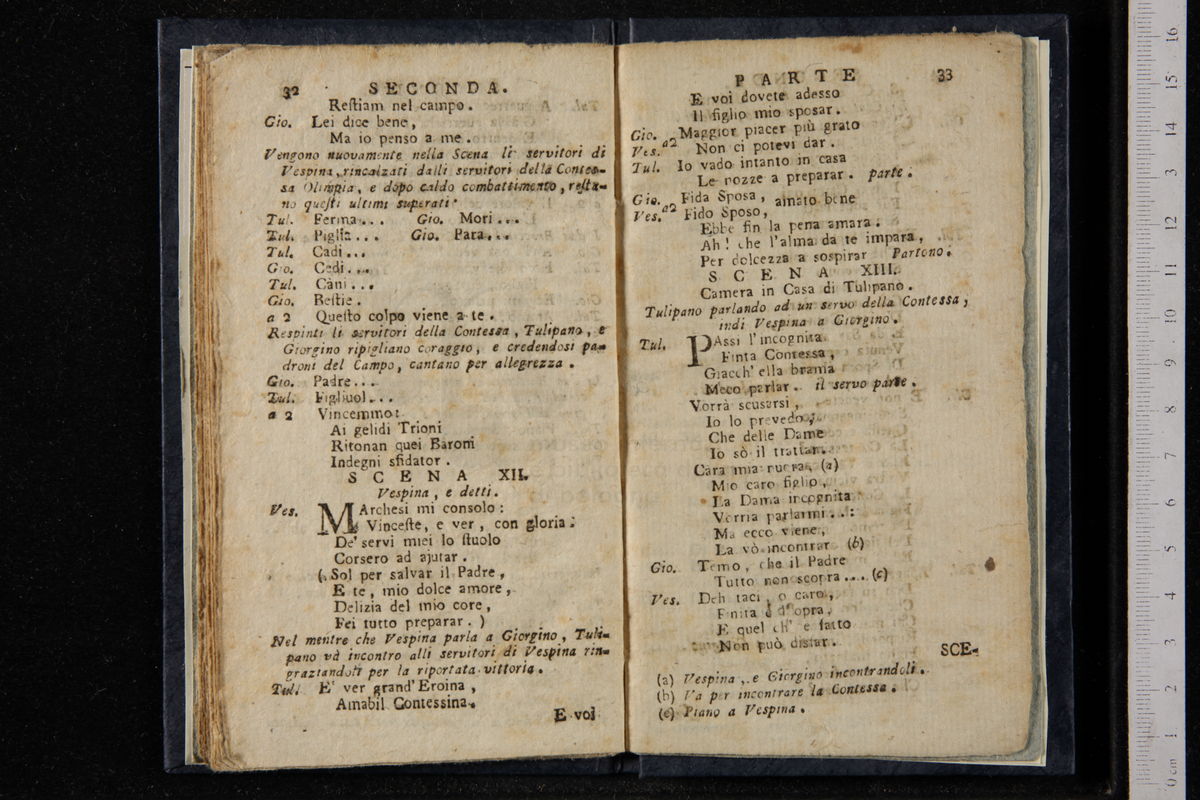 32 SECONDA.
Reſtiam nel campo.
Gio. Lei dice bene,
Ma io penso a me.
Vengono nuovamente nella Scena li servitori di
Vespina, rincalzati dalli servitori della Contes-
sa Olimpia, e dopo caldo combattimento, reſta-
no queſti ultimi superati.
Tul. Ferma... Gio. Mori...
Tul. Piglia... Gio. Para...
Tul. Cadi...
Gio. Cedi...
Tul. Cani...
Gio. Beſtie.
a 2 Queſto colpo viene a te.
Respinti li servitori della Contessa, Tulipano, e
Giorgino ripigliano coraggio, e credendosi pa-
droni del Campo, cantano per allegrezza.
Gio. Padre...
Tul. Figliuol...
a 2 Vincemmo:
Ai gelidi Trioni
Ritonan quei Baroni
Indegni sfidator.
SCENA XII.
Vespina, e detti.
Ves. MArchesi mi consolo:
Vinceſte, e ver, con gloria:
De' servi miei lo ſtuolo
Corsero ad ajutar.
(Sol per salvar il Padre,
E te, mio dolce amore,
Delizia del mio core,
Fei tutto preparar.)
Nel mentre che Vespina parla a Giorgino, Tuli-
pano và incontro alli servitori di Vespina rin-
graziandoli per la riportata vittoria.
Tul. E' ver grand'Eroina,
Amabil Contessina.
E voi
PARTE 33
E voi dovete adesso
Il figlio mio sposar.
Gio. Maggior piacer più grato
Ves. a2 Non ci potevi dar.
Tul. Io vado intanto in casa
Le nozze a preparar. parte.
Gio. Fida Sposa, amato bene
Ves. a2 Fido Sposo,
Ebbe fin la pena amara.
Ah! che l'alma da te impara,
Per dolcezza a sospirar Partono.
SCENA XIII.
Camera in Casa di Tulipano.
Tulipano parlando ad un servo della Contessa,
indi Vespina a Giorgino.
Tul. PAssi l'incognita
Finta Contessa,
Giacch' ella brama
Meco parlar. il servo parte.
Vorrà scusarsi,
Io lo prevedo;
Che delle Dame
Io sò il trattar.
Cara mia nuora, (a)
Mio caro figlio,
La Dama incognita
Vorria parlarmi...:
Ma ecco viene,
La vò incontrar (b)
Gio. Temo, che il Padre
Tutto non scopra.... (c)
Ves. Deh taci, o caro,
Finita è d'opra,
E quel ch' e fatto
Non può disfar.
SCE-
(a) Vespina, e Giorgino incontrandoli.
(b) Va per incontrare la Contessa.
(c) Piano a Vespina.
16
15
14
13
12
11
10
9
8
7
6
5
4
3
2
1
0 cm